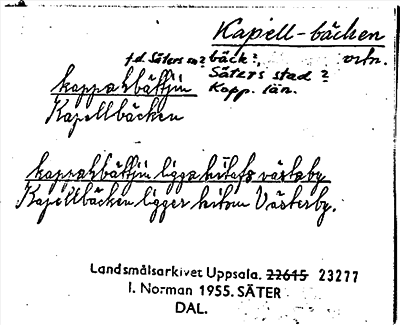 Kapell-bäcken
f.d. Säters sn? bäck?, ortn.
Säters stad?
Kopp. län.
kappahbättjin
Kapellbäcken
kappahbättjin ligga hitafs västsby
Kapellbäcken ligger hitom Västerby.
Landsmålsarkivet Uppsala. 22615 23277
I. Norman 1955. SÄTER
DAL.